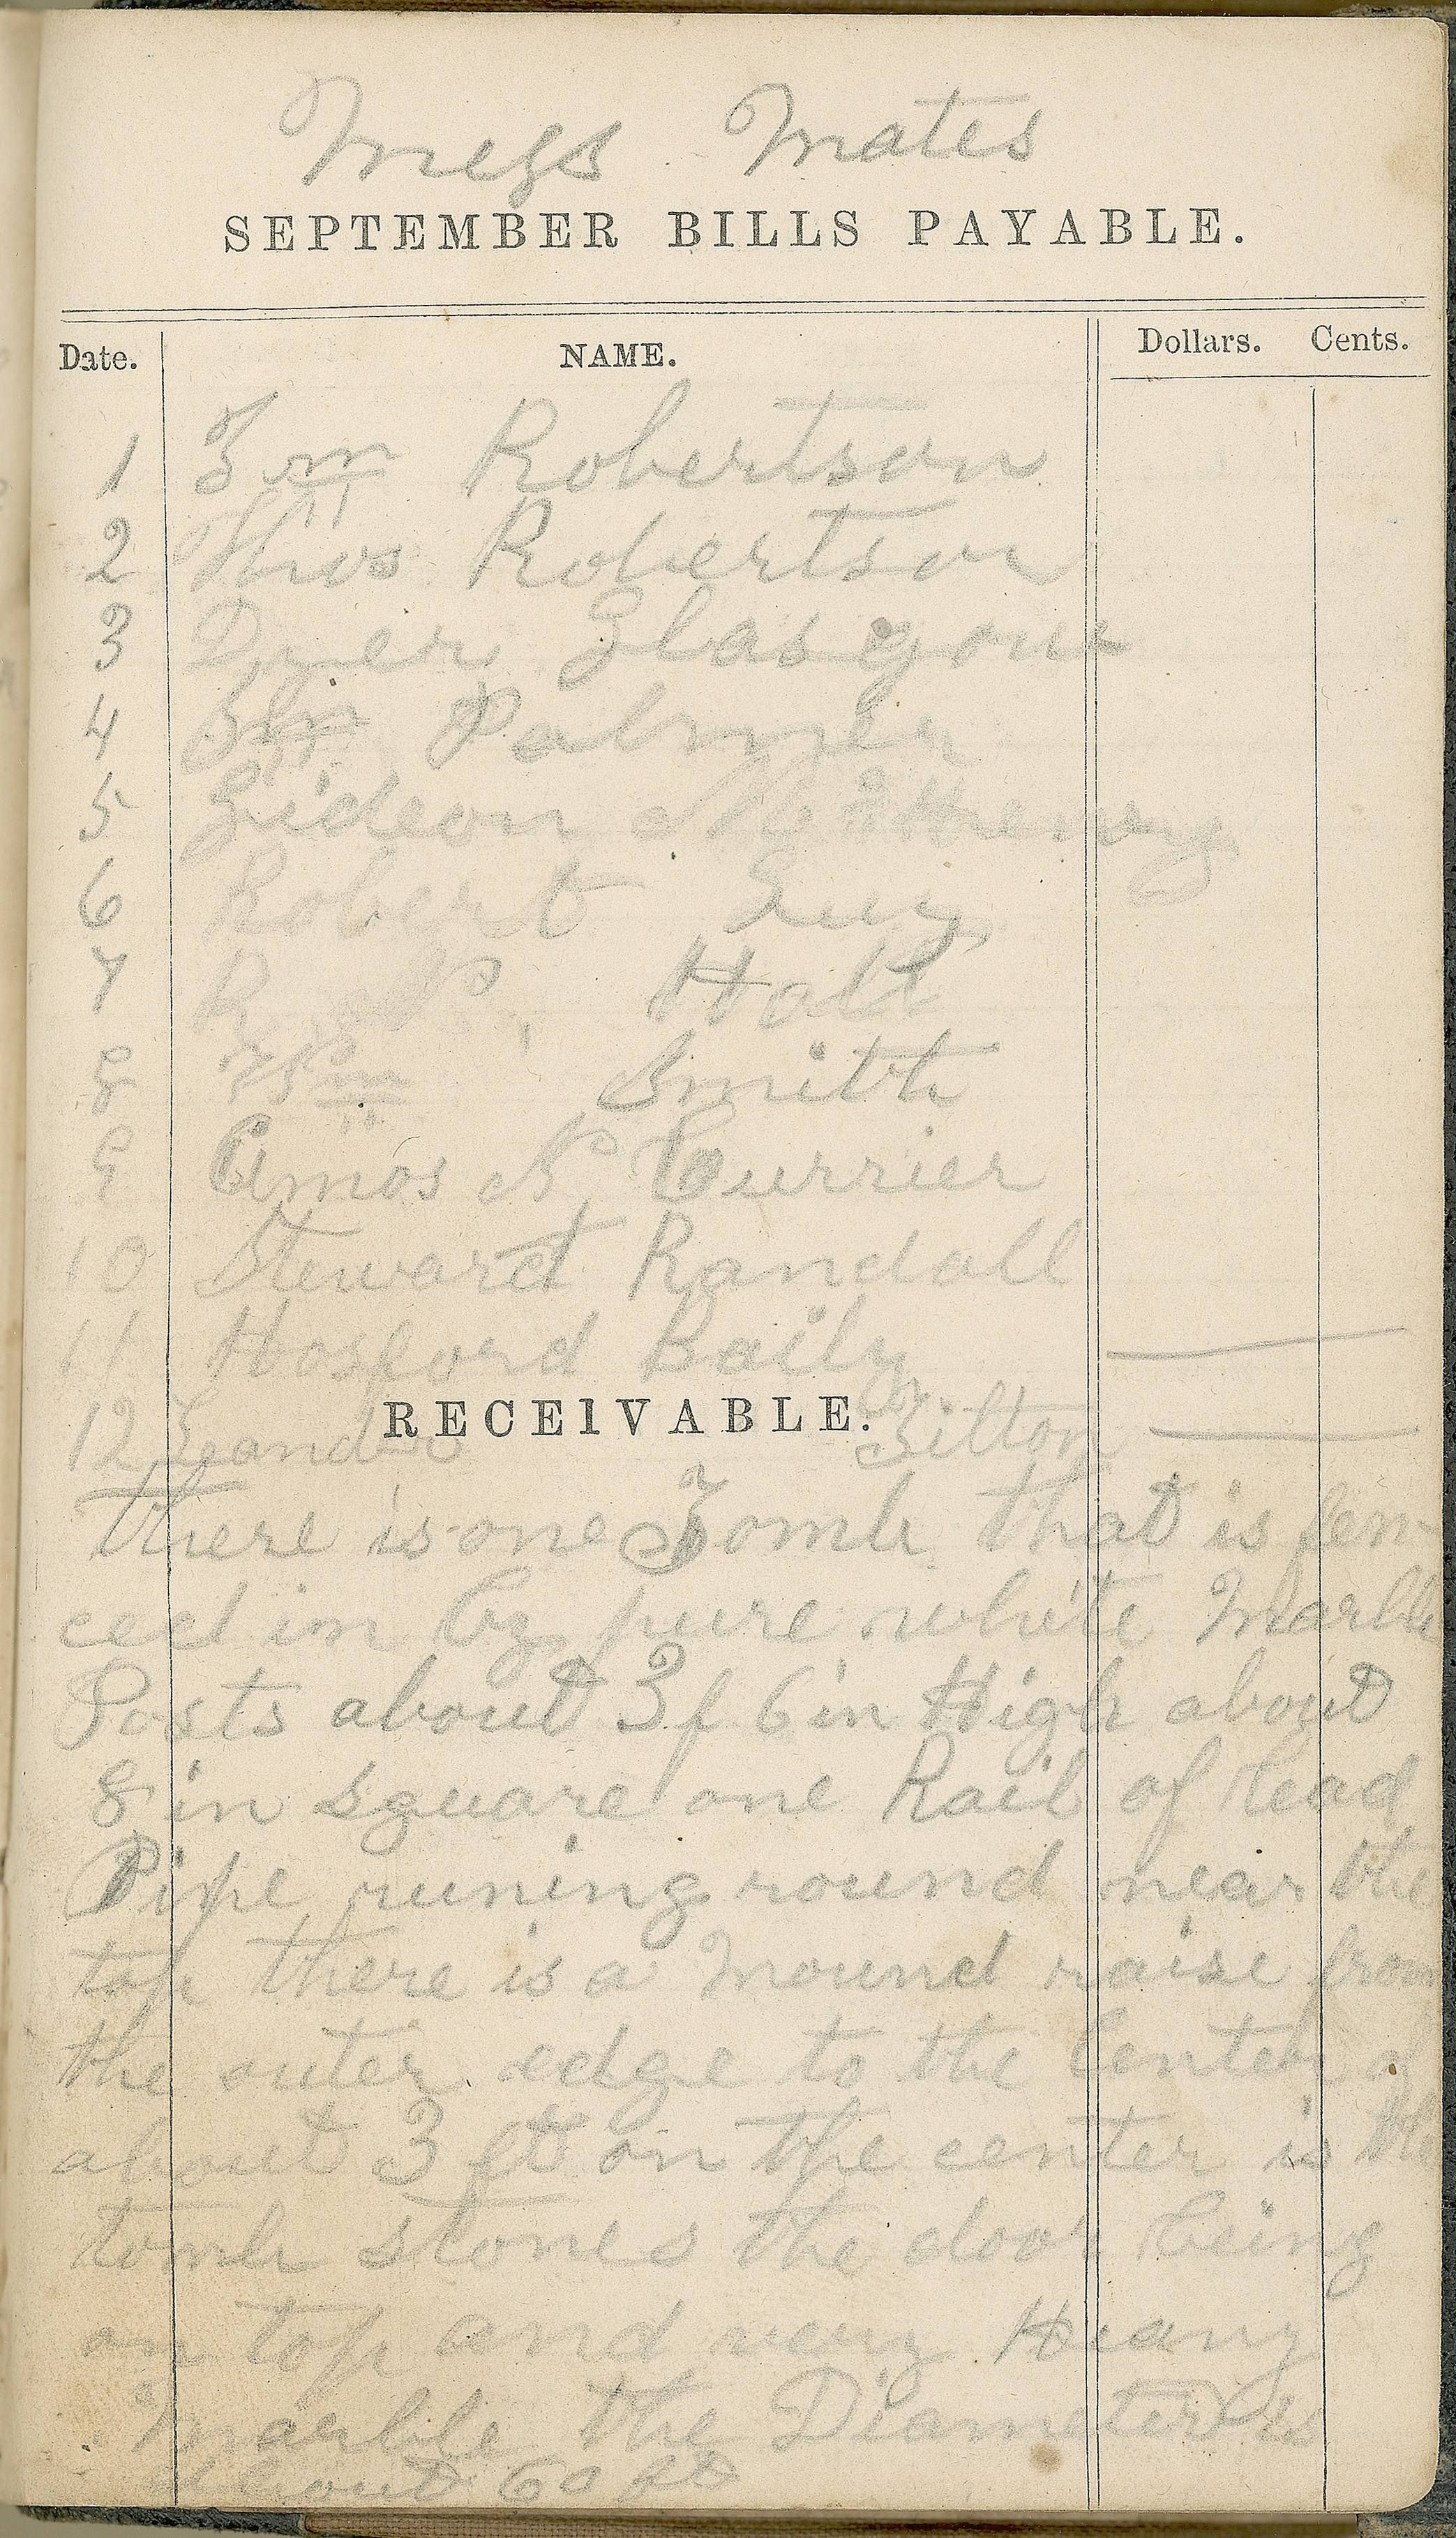 Mess Mates
SEPTEMBER BILLS PAYABLE.
Date. NAME. Dollars. Cents.
1 Wm Robertson
2 Thos Robertson
3 Dyer Glasgow
4 Wm Palmer
5 Gideon
6 Robert Guy
7 R. N. Hall
8 Wm Smith
9 Amos N. Currier
10 Steward Randall
11 Hosford Baily
12 Leander Silton
RECEIVABLE.
there is one Tomb that is fen-
ced in by pure white Marble
Posts about 3 f 6 in High about
8 in square one Rail of lead
Pipe runing round near the
top there is a Mound raise from
the outer edge to the Center of
about 3 ft on the center is the
tomb stones the door being
on top and very Heavy
Marble the Diameter is
about 60 ft